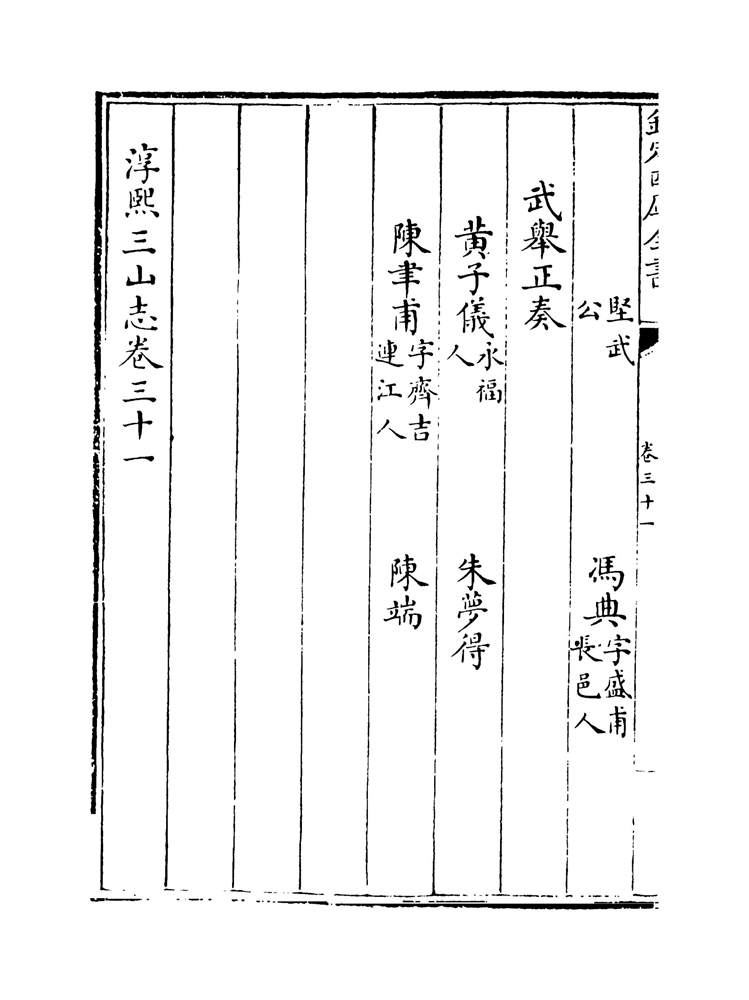 欽定四庫全書
卷三十一
堅武
公
馮典字盛甫
長邑人
武舉正奏
黄子儀永福
人
朱夢得
陳聿甫字齊吉
連江人
陳端
淳熙三山志卷三十一